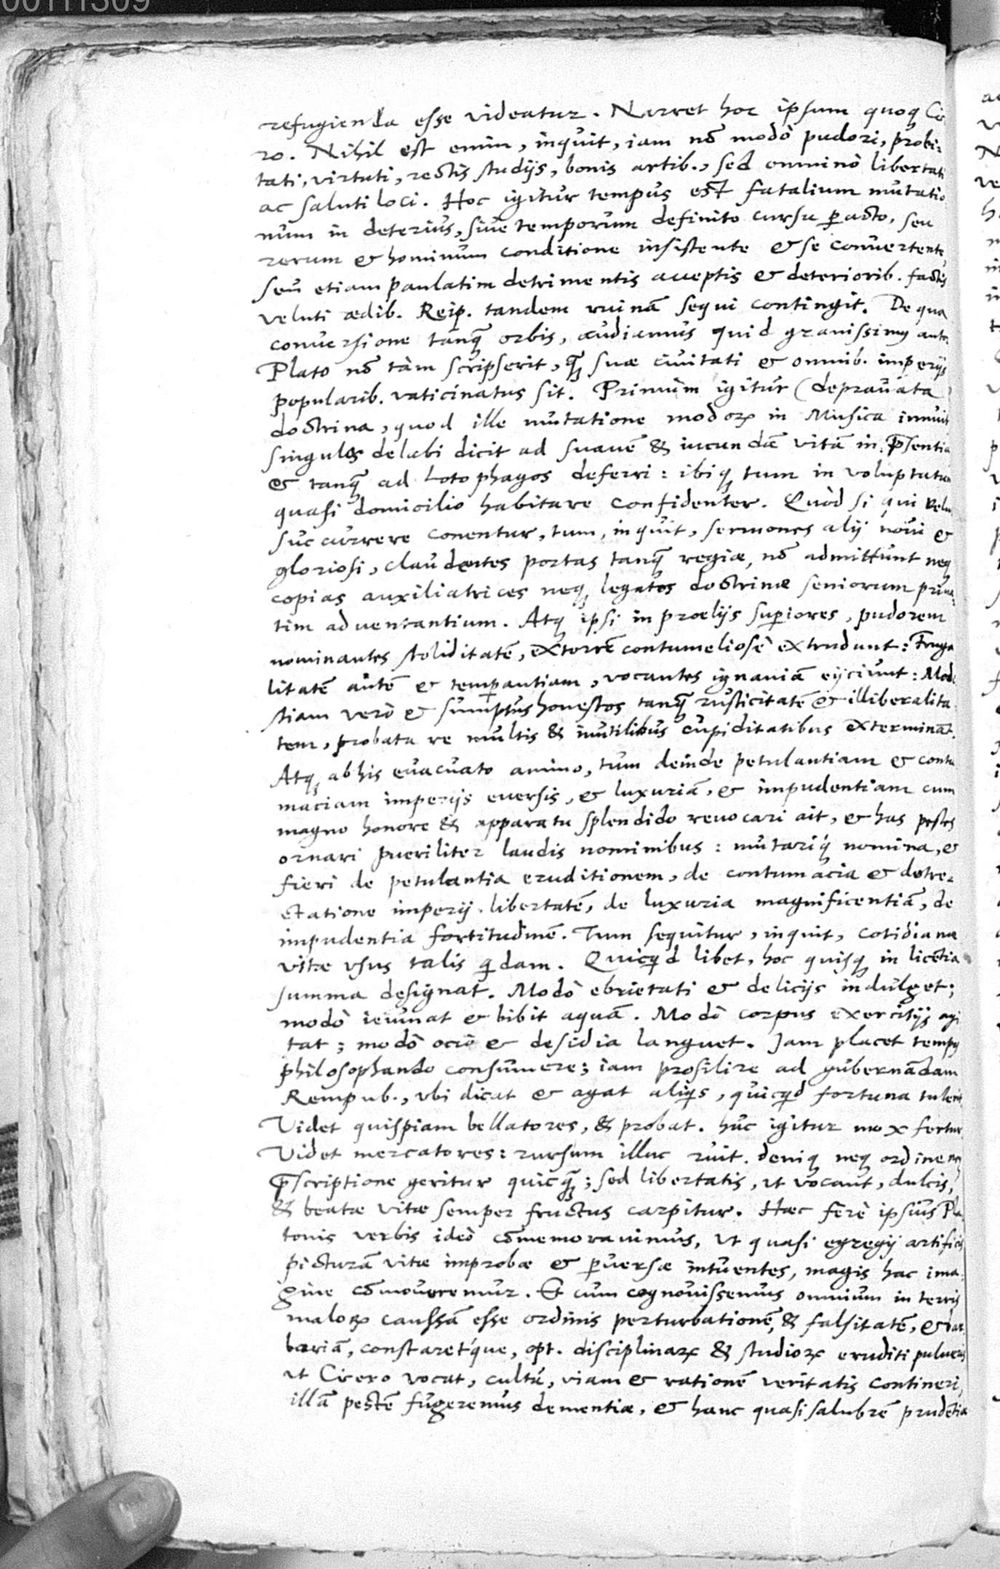 00111309
refugienda esse videatur. Narret hoc ipsum quoq Cice
ro. Nihil est enim, inquit, iam nõ modò pudori, probi:
tati, virtuti, rectis studijs, bonis artib., sed omninò libertati
ac saluti loci. Hoc igitur tempus est fatalium mutatio
num in deterius, sive temporum definito cursu peracto, seu
rerum & hominum conditione insistente & se convertente
seu etiam paulatim detrimentis acceptis & deteriorib. factis
veluti ædib. Reip. tandem ruinã sequi contingit. De qua
conversione tanq orbis, audiamus quid gravissimus autor
Plato nõ tàm scripserit, q suæ civitati & omnib. imperijs
popularib. vaticinatus sit. Primùm igitur (depravata
doctrina, quod ille mutatione modorꝝ in Musica innuit
singulos delabi dicit ad suavẽ & iucundã vitã in psentia
& tanq ad Lotophagos deferri: ibiq tum in voluptatum
quasi domicilio habitare confidenter. Quòd si qui velint
succurrere conentur, tum, inquit, sermones alij novi &
gloriosi, claudentes portas tanq regiæ, nõ admittunt neq
copias auxiliatrices neq legatos doctrinæ seniorum priva
tim adventantium. Atq ipsi in prœlijs superiores, pudorem
nominantes stoliditatẽ, extorrẽ contumeliosè extrudunt: Fruga
litatẽ autẽ & temperantiam, vocantes ignaviã eijciunt: Mode
stiam verò & sumptus honestos tanq rusticitatẽ & illiberalita
tem, probata re multis & inutilibus cupiditatibus exterminãt.
Atq ab his evacuato animo, tum deinde petulantiam & contu
maciam imperijs eversis, & luxuriã, & impudentiam cum
magno honore & apparatu splendido revocari ait, & has pestes
ornari pueriliter laudis nominibus: mutariq nomina, &
fieri de petulantia eruditionem, de contumacia & detre-
ctatione imperij libertatẽ, de luxuria magnificentiã, de
impudentia fortitudinẽ. Tum sequitur, inquit, cotidiana
vitæ usus talis qidam. Quicqd libet, hoc quisq in licẽtia
summa designat. Modò ebrietati & delicijs indulget;
modò ieiunat & bibit aquã. Modò corpus exercitijs agi
tat; modò ocio & desidia languet. Jam placet tempus
philosophando consumere; iam prosilire ad gubernãdam
Rempub., ubi dicat & agat aliqis, quicqd fortuna tulerit
Videt quispiam bellatores, & probat. huc igitur mox fertur
Videt mercatores: rursum illuc ruit. deniq neq ordine neq
pscriptione geritur quicq; sed libertatis, ut vocant, dulcis,
& beatæ vitæ semper fructus carpitur. Hæc ferè ipsius Pla
tonis verbis ideò cõmemoravimus, ut quasi egregij artificis
picturã vitæ improbæ & perversæ intuentes, magis hac ima-
gine cõmoveremur. Et cum cognovissemus omnium in terris
malorꝝ caussã esse ordinis perturbationẽ, & falsitatẽ, & bar
bariã, constaretque, opt. disciplinarꝝ & studiorꝝ eruditi pulveris
ut Cicero vocat, cultu, viam & rationẽ veritatis contineri,
illã pestẽ fugeremus dementiæ, & hanc quasi salubrẽ prudẽtiæ